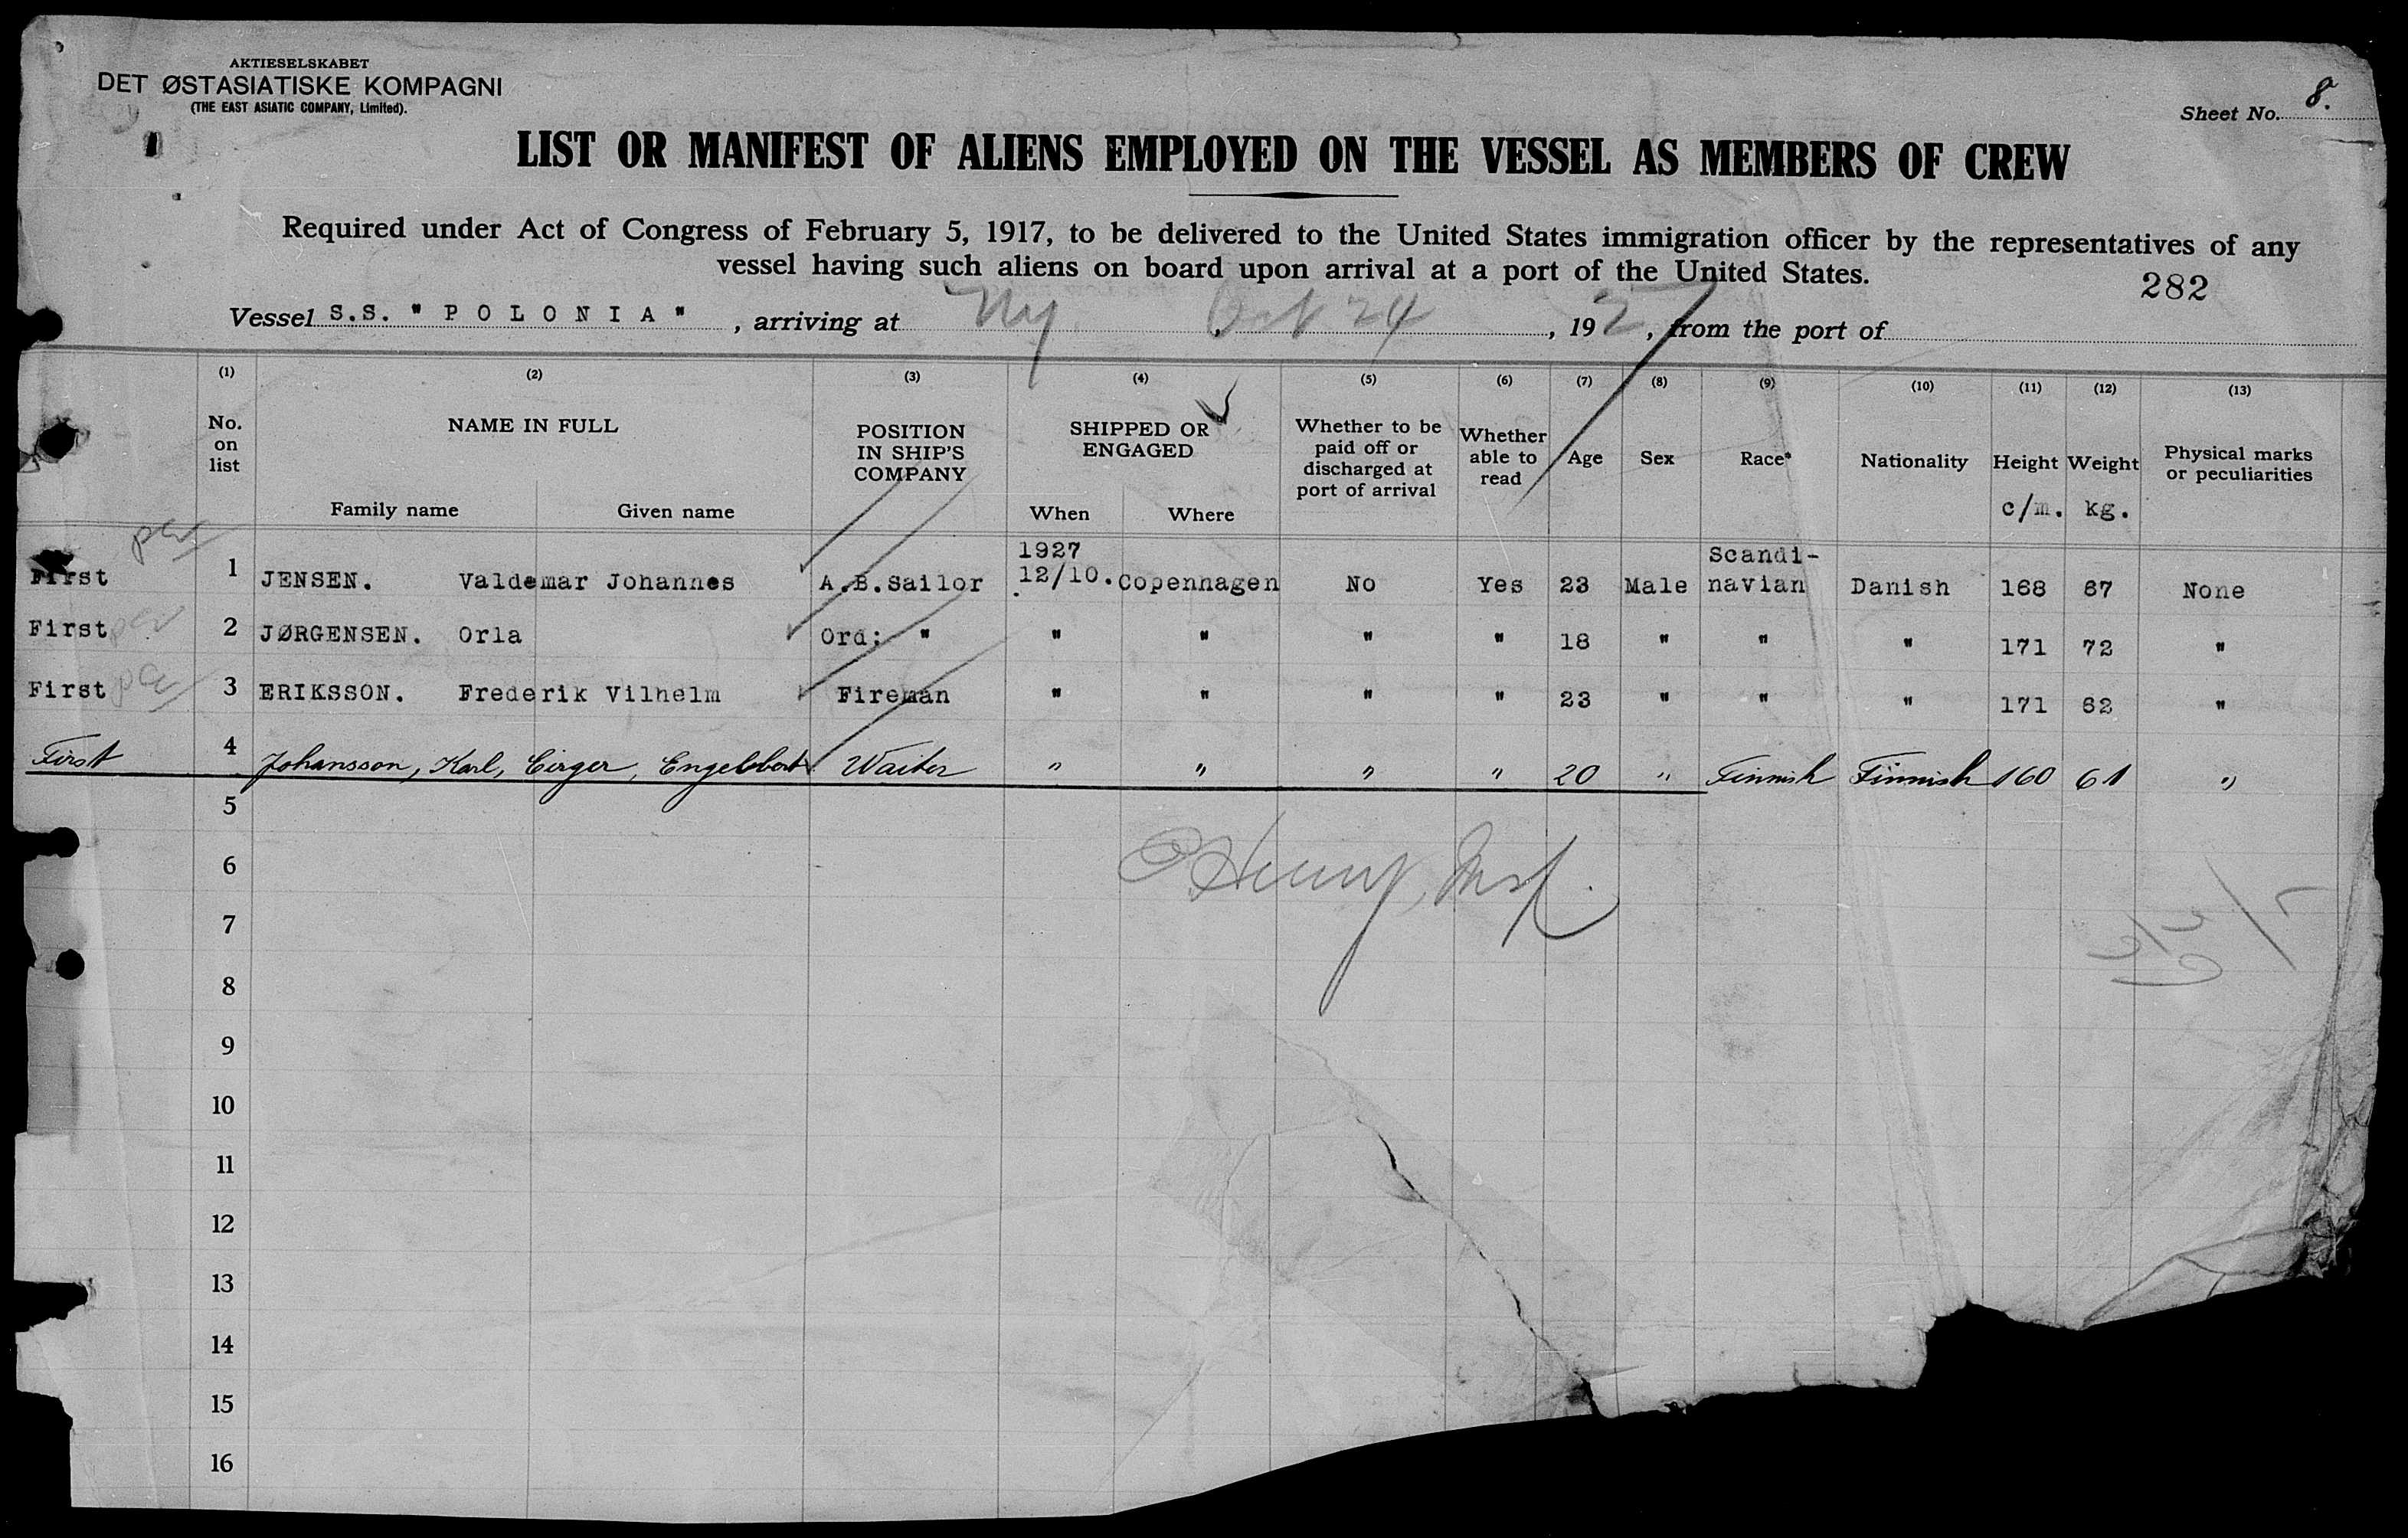 AKTIESELSKABET
DET ØSTASIATISKE KOMPAGNI
(THE EAST ASIATIC COMPANY, Limited).
Sheet No. 8.
LIST OR MANIFEST OF ALIENS EMPLOYED ON THE VESSEL AS MEMBERS OF CREW
Required under Act of Congress of February 5, 1917, to be delivered to the United States immigration officer by the representatives of any
vessel having such aliens on board upon arrival at a port of the United States.
282
Vessel S.S. "POLONIA" , arriving at Ny , Oct 24 , 1927 , from the port of
(1) (2) (3) (4) (5) (6) (7) (8) (9) (10) (11) (12) (13)
No. on list NAME IN FULL Family name Given name POSITION IN SHIP'S COMPANY SHIPPED OR ENGAGED When Where Whether to be paid off or discharged at port of arrival Whether able to read Age Sex Race* Nationality Height c/m. Weight kg. Physical marks or peculiarities
First 1 JENSEN. Valdemar Johannes A.B.Sailor 1927 12/10. Copenhagen No Yes 23 Male Scandi-navian Danish 168 67 None
First 2 JØRGENSEN. Orla Ord: " " " " " 18 " " " 171 72 "
First 3 ERIKSSON. Frederik Vilhelm Fireman " " " " 23 " " " 171 62 "
First 4 Johansson, Karl, Birger, Engelbbert Waiter " " " " 20 " Finnish Finnish 160 61 "
5
6
7
8
9
10
11
12
13
14
15
16